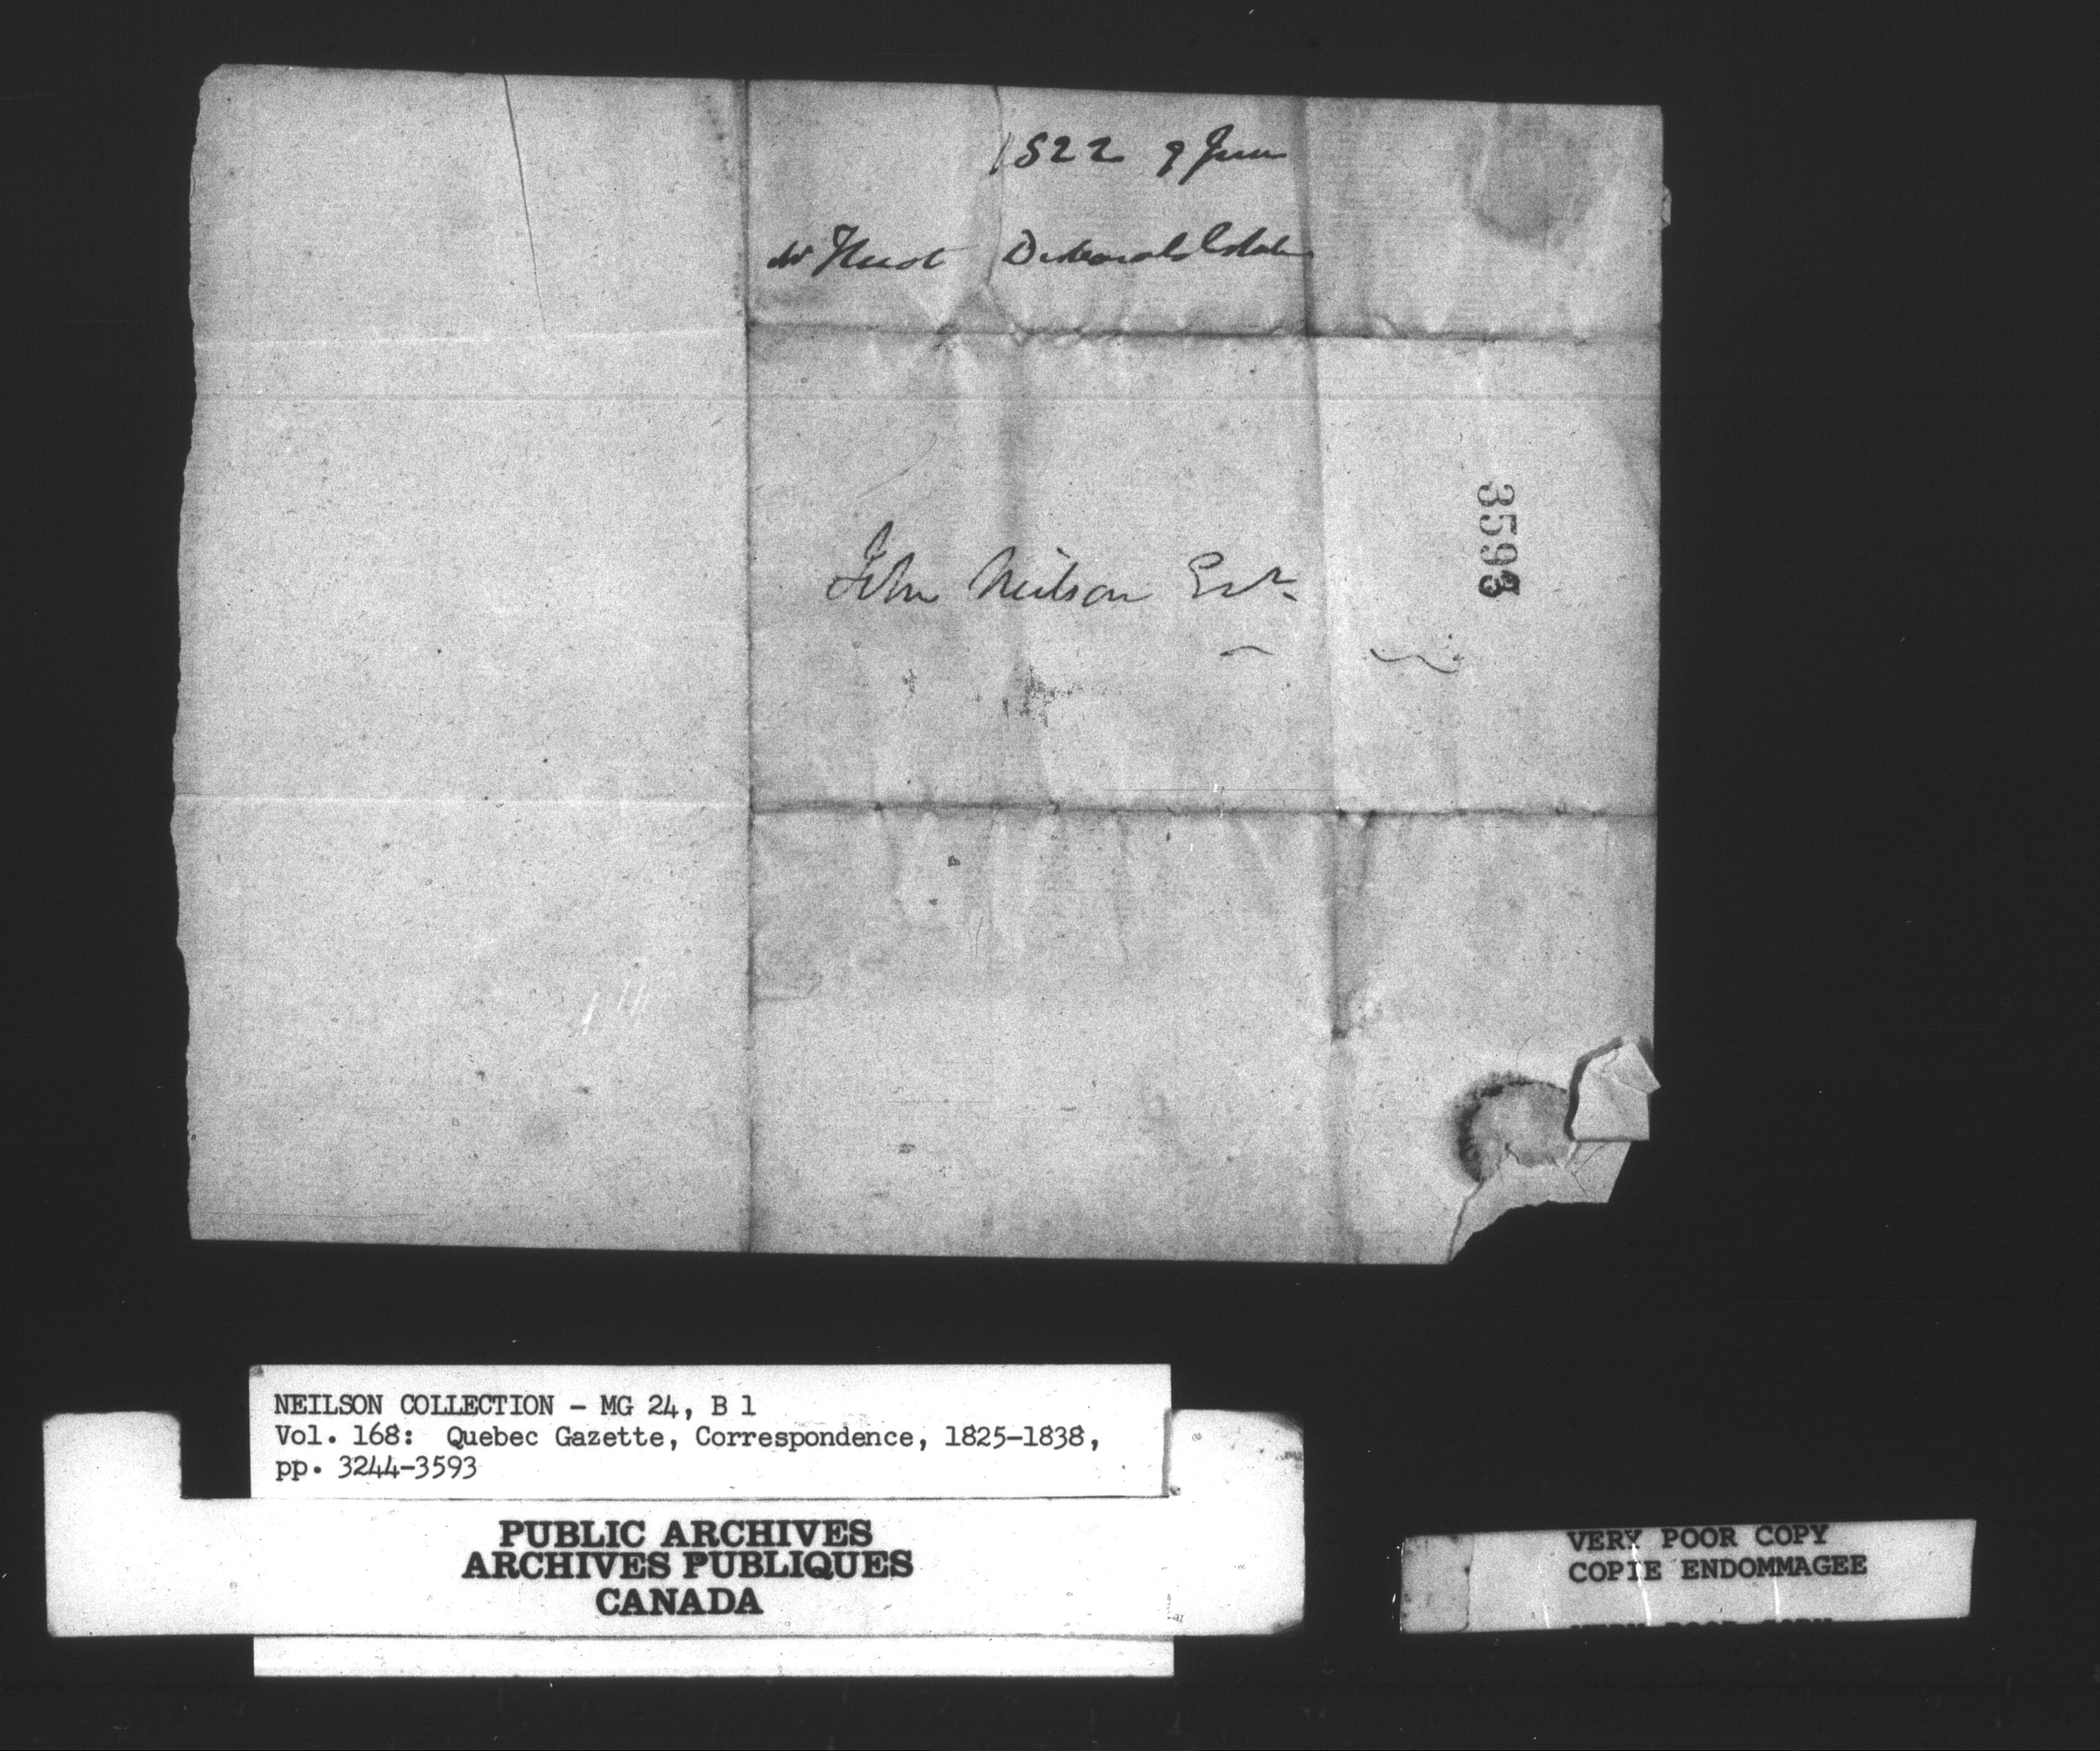 1822 9 June
Mr Huot
John Neilson Esr.
3593
NEILSON COLLECTION - MG 24, B 1
Vol. 168: Quebec Gazette, Correspondence, 1825-1838,
pp. 3244-3593
PUBLIC ARCHIVES
ARCHIVES PUBLIQUES
CANADA
VERY POOR COPY
COPIE ENDOMMAGEE